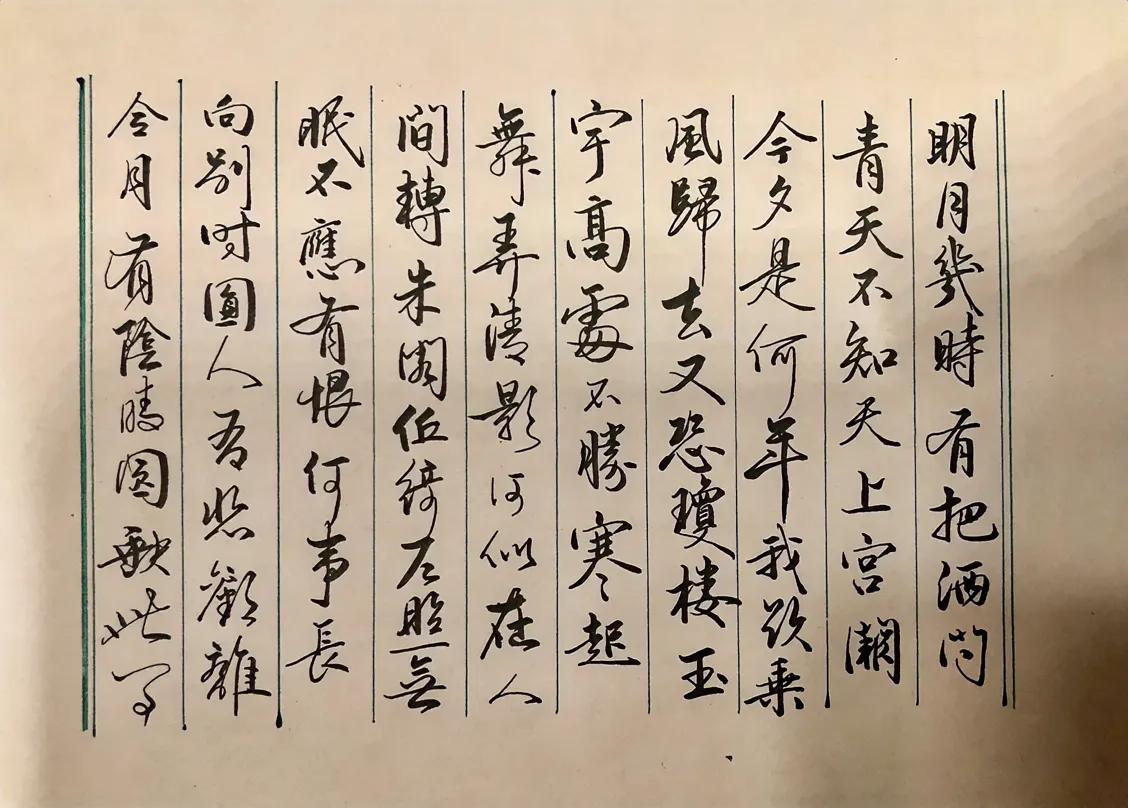 明月幾時有把酒问
青天不知天上宮瀾
今夕是何年我欲乘
風歸去又恐瓊楼玉
宇高處不勝寒起
舞弄清影何似在人
間轉朱阁低綺户照無
眠不應有恨何事長
向别时圓人有悲歡離
合月有陰晴圆缺此事